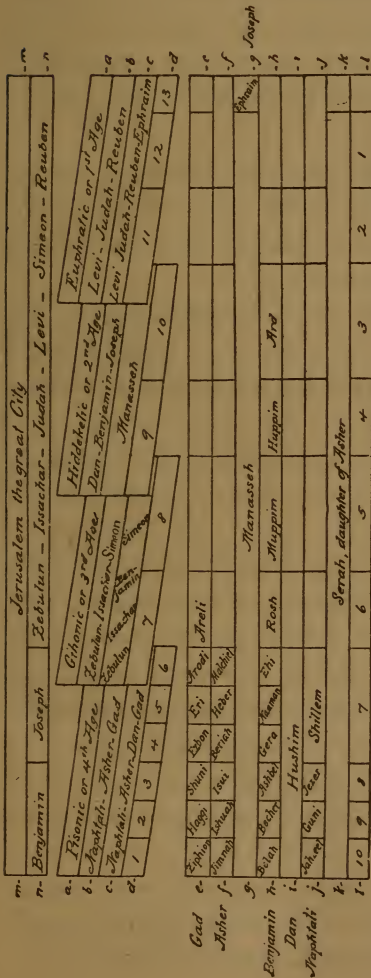 m- Jerusalem the great City -m
n- Benjamin Joseph Zebulun - Issachar - Judah - Levi - Simeon - Reuben -n
a- Pisonic or 4th Age Gihonic or 3rd Age Hiddekelic or 2nd Age Euphratic or 1st Age -a
b- Naphtali-Asher-Gad Zebulun-Issachar-Simeon Dan-Benjamin-Joseph Levi-Judah-Reuben -b
c- Naphtali-Asher-Dan-Gad Zebulun Issachar Benjamin Simeon Manasseh Levi Judah-Reuben-Ephraim -c
d- 1 2 3 4 5 6 7 8 9 10 11 12 13 -d
Gad e- Ziphion Haggi Shuni Ezbon Eri Arodi Areli -e
Asher f- Jimnah Ishuah Isui Beriah Heber Malchiel -f
g- Manasseh Ephraim -g Joseph
Benjamin h- Belah Becher Ashbel Gera Naaman Ehi Rosh Muppim Huppim Ard -h
Dan i- Hushim -i
Naphtali j- Jahzeel Guni Jezer Shillem -j
k- Serah, daughter of Asher -k
l- 10 9 8 7 6 5 4 3 2 1 -l